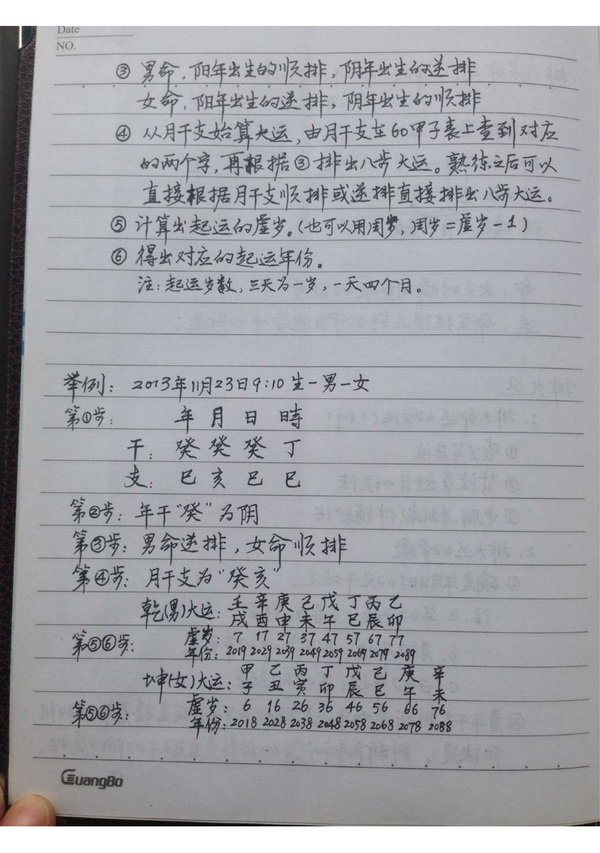 Date
NO.
③ 男命,阳年出生的顺排,阴年出生的逆排
女命,阳年出生的逆排,阴年出生的顺排
④ 从月干支始算大运,由月干支在60甲子表上查到对应
的两个字,再根据③排出八步大运。熟练之后可以
直接根据月干支顺排或逆排直接排出八步大运。
⑤ 计算出起运的虚岁。(也可以用周岁,周岁=虚岁-1)
⑥ 得出对应的起运年份。
注:起运岁数,三天为一岁,一天四个月。
举例: 2013年11月23日9:10 生一男一女
第①步: 年 月 日 時
干: 癸 癸 癸 丁
支: 巳 亥 巳 巳
第②步: 年干“癸”为阴
第③步: 男命逆排,女命顺排
第④步: 月干支为“癸亥”
乾(男)大运: 壬 辛 庚 己 戊 丁 丙 乙
戌 酉 申 未 午 巳 辰 卯
第⑤⑥步: 虚岁: 7 17 27 37 47 57 67 77
年份: 2019 2029 2039 2049 2059 2069 2079 2089
坤(女)大运: 甲 乙 丙 丁 戊 己 庚 辛
子 丑 寅 卯 辰 巳 午 未
第⑤⑥步: 虚岁: 6 16 26 36 46 56 66 76
年份: 2018 2028 2038 2048 2058 2068 2078 2088
GuangBo